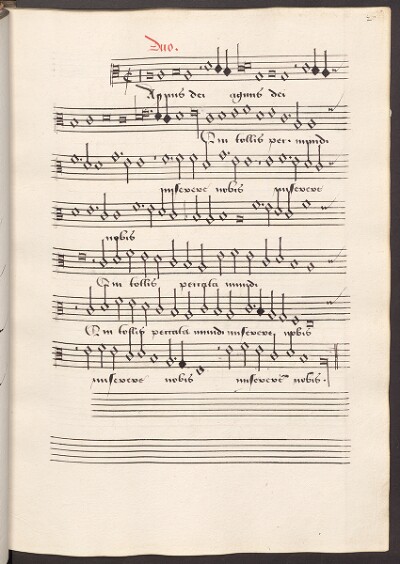 Duo.
Agnus dei agnus dei
Qui tollis pec. mundi
miserere nobis miserere
nobis
Qui tollis peccata mundi
Qui tollis peccata mundi miserere nobis
miserere nobis miserere nobis.